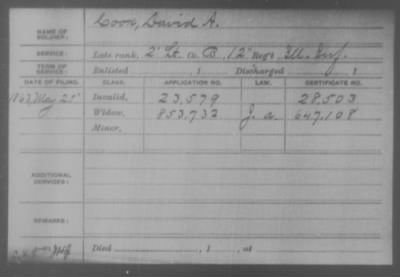 NAME OF SOLDIER: Coon, David A.
SERVICE: Late rank, 2" Lt. Co. B, 12" Reg't Ill. Inf.
TERM OF SERVICE: Enlisted , 1 Discharged , 1
DATE OF FILING. CLASS. APPLICATION NO. LAW. CERTIFICATE NO.
1863 May 25" Invalid, 23,579 28,503
Widow, 853,733 J. a. 647,108
Minor,
ADDITIONAL SERVICES:
REMARKS:
Died , 1 , at